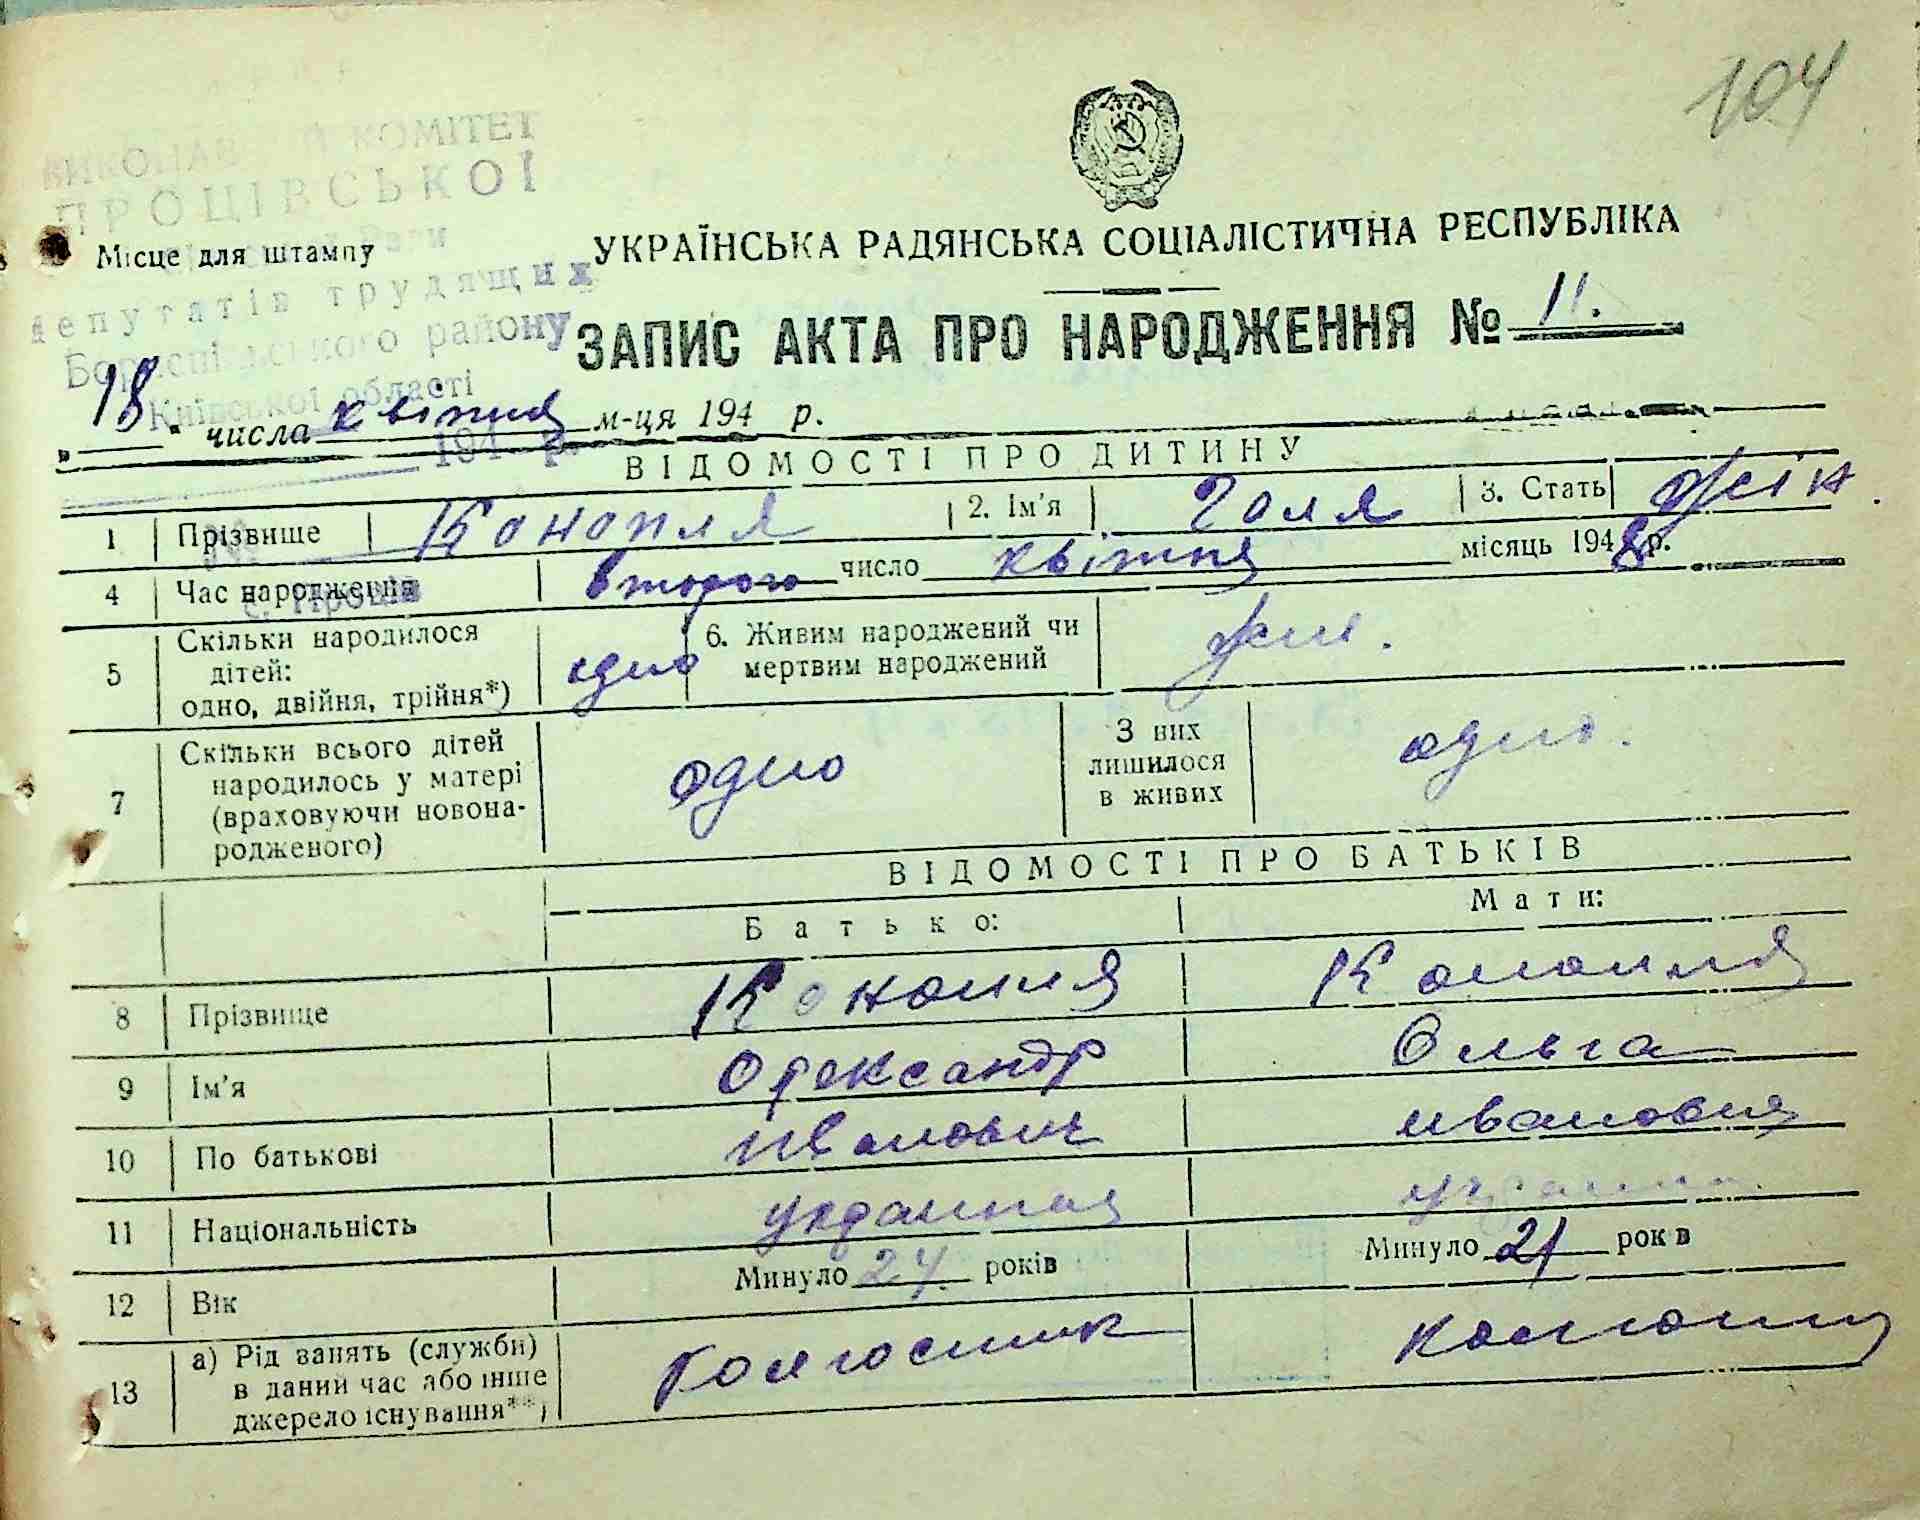 104
ВИКОНАВЧИЙ КОМІТЕТ
ПРОЦІВСЬКОЇ
Ради
депутатів трудящих
Бориспільського району
Київської області
194 р.
с. Проців
Місце для штампу
УКРАЇНСЬКА РАДЯНСЬКА СОЦІАЛІСТИЧНА РЕСПУБЛІКА
ЗАПИС АКТА ПРО НАРОДЖЕННЯ № 11.
„18“ числа квітня м-ця 194 р.
ВІДОМОСТІ ПРО ДИТИНУ
1 Прізвище Конопля 2. Ім'я Галя 3. Стать жін.
4 Час народження второго число квітня місяць 1948 р.
5 Скільки народилося дітей: одно, двійня, трійня*) одно 6. Живим народжений чи мертвим народжений жив.
7 Скільки всього дітей народилось у матері (враховуючи новонародженого) одно З них лишилося в живих одно.
ВІДОМОСТІ ПРО БАТЬКІВ
Батько: Мати:
8 Прізвище Конопля Конопля
9 Ім'я Олександр Ольга
10 По батькові Иванович Ивановня
11 Національність
12 Вік Минуло 24 років Минуло 21 рок в
13 а) Рід занять (служби) в даний час або інше джерело існування**) Колгоспник